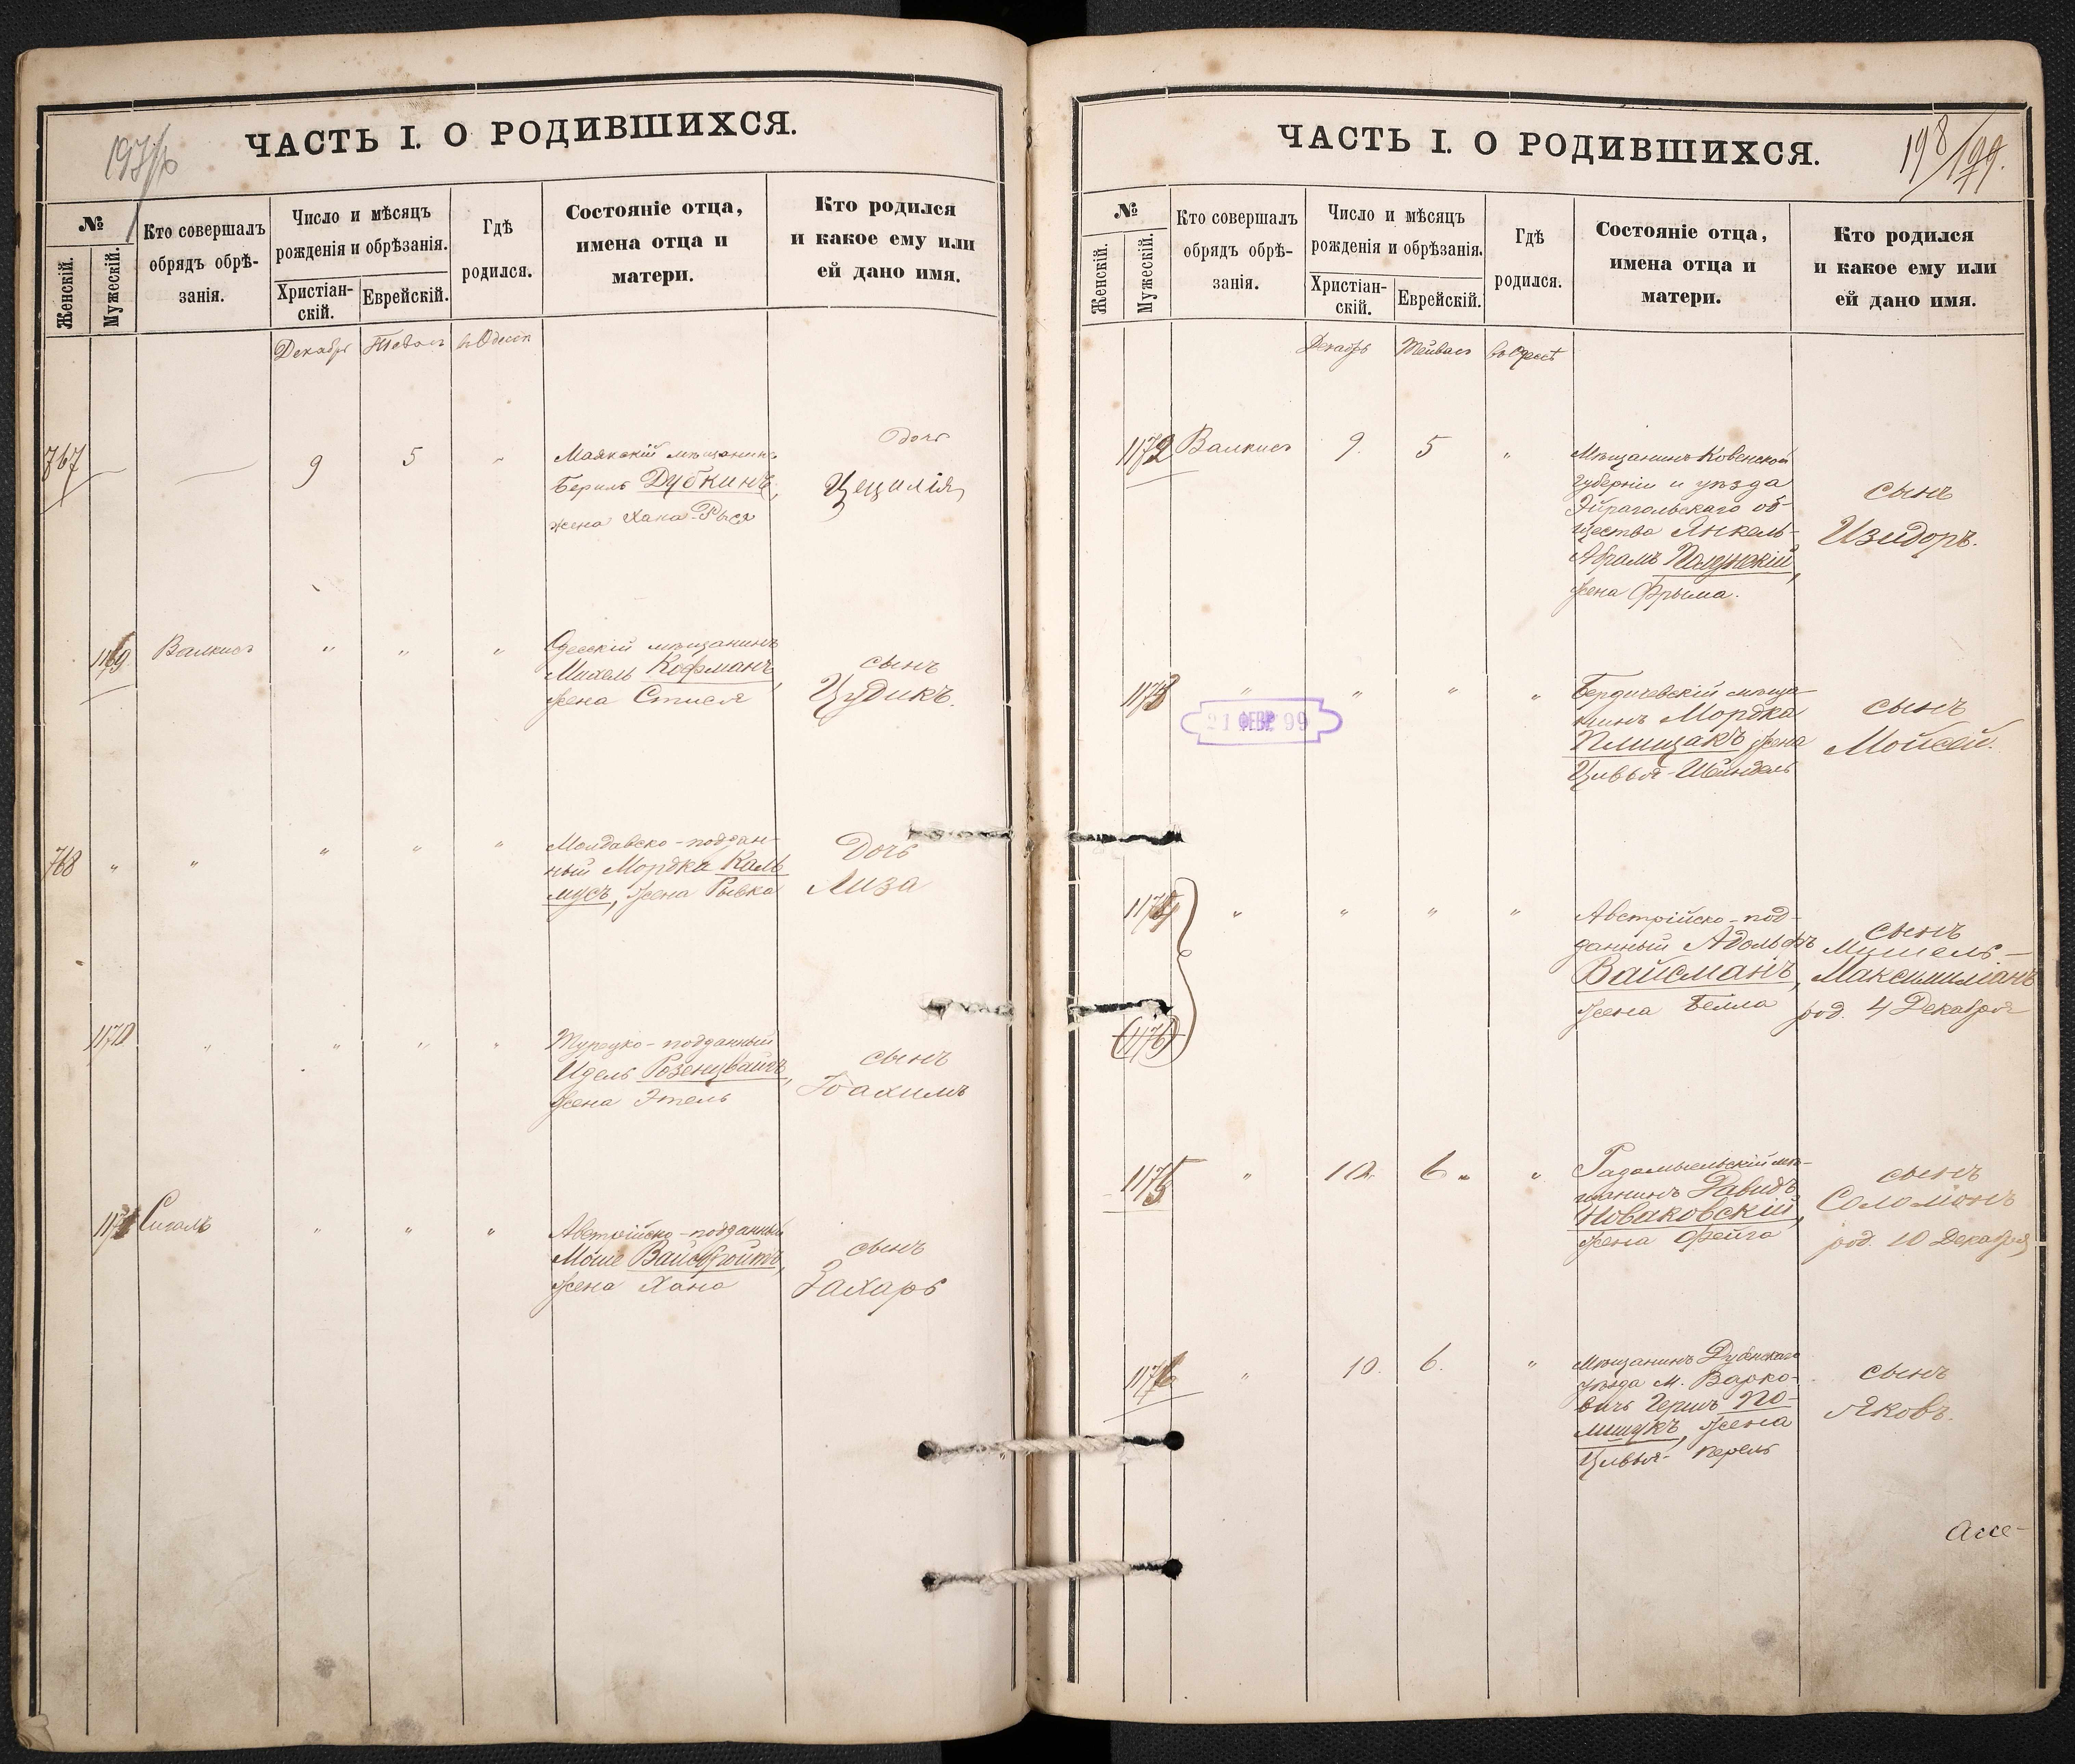 ЧАСТЬ I. О РОДИВШИХСЯ.
№
Женскій.
Мужескій.
Кто совершалъ
обрядъ обрѣ-
занія.
Число и мѣсяцъ
рожденія и обрѣзанія.
Христіан-
скій.
Еврейскій.
Гдѣ
родился.
Состояніе отца,
имена отца и
матери.
Кто родился
и какое ему или
ей дано имя.
Декабрь
767
9
5
Маякскій мѣщанинъ
Берилъ Дубкинъ,
жена Хана-Рыся
дочь
Цецилія
1169
Валкисъ
" " "
Одесскій мѣщанинъ
Михель Кофманъ,
жена Стися
сынъ
Цудикъ.
768 " " " " "
Молдавско-поддан-
ный Мордка Каль
мусъ, жена Рывка
Дочь
Лиза
1170 " " " "
Турецко-подданный
Идель Розенцвайгъ,
жена Этель
сынъ
Іоахимъ
1171
Сигалъ
" " "
Австрійско-подданный
Моше
жена Хана
сынъ
Захаръ
ЧАСТЬ I. О РОДИВШИХСЯ.
198/199.
№
Женскій.
Мужескій.
Кто совершалъ
обрядъ обрѣ-
занія.
Число и мѣсяцъ
рожденія и обрѣзанія.
Христіан-
скій.
Еврейскій.
Гдѣ
родился.
Состояніе отца,
имена отца и
матери.
Кто родился
и какое ему или
ей дано имя.
Декабрь
1172
Валкисъ
9. 5 "
Мѣщанинъ Ковенской
губерніи и уѣзда
Эйрагольскаго об-
щества Янкель-
Абрамъ
жена Фрыма.
сынъ
Изидоръ.
1173 " " " "
21 ФЕВР. 99
Бердичевскій мѣща-
нинъ Мордка
Плищакъ жена
Цивья-Шейндель
сынъ
Мойсей.
1174 " " " "
Австрійско-под-
данный Адольфъ
Вайсманъ,
жена Белла
сынъ
Мишель-
Максимиліанъ
род. 4 Декабря
(1176)
1175 " 10. 6 " "
Радомысльскій мѣ-
щанинъ Давидъ
Новаковскій,
жена Фейга
сынъ
Соломонъ
род. 10 Декабря
1176 " 10. 6. "
Мѣщанинъ Дубенскаго
уѣзда м. Варко-
вичъ Гершъ По-
лищукъ, жена
Цивья-Перель
сынъ
Яковъ.